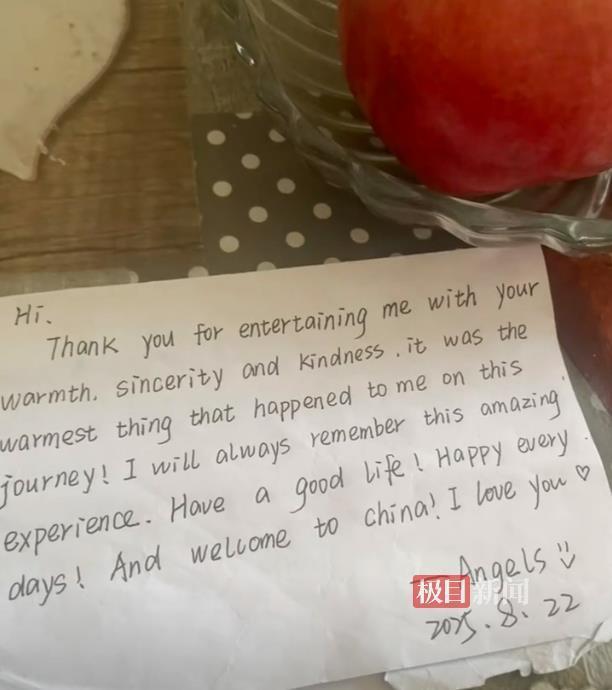 Hi.
Thank you for entertaining me with your
warmth. sincerity and kindness. it was the
warmest thing that happened to me on this
journey! I will always remember this amazing
experience. Have a good life! Happy every
days! And welcome to china! I love you ♡
— Angels
极目新闻
2025.8.22